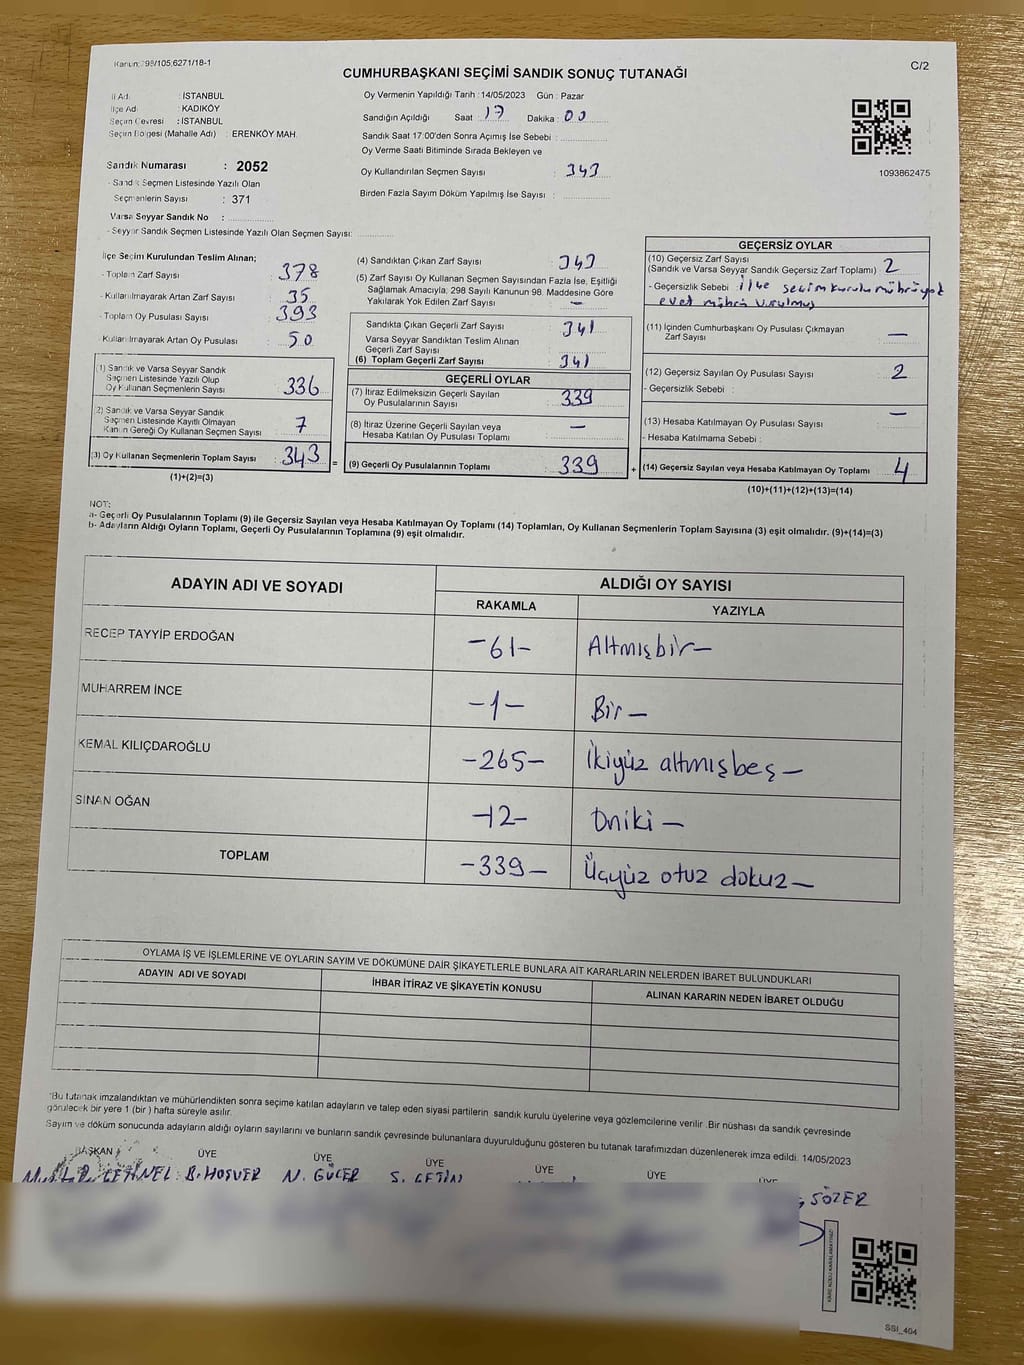 Kanun: 298/105;6271/18-1
C/2
CUMHURBAŞKANI SEÇİMİ SANDIK SONUÇ TUTANAĞI
İl Adı : İSTANBUL
İlçe Adı : KADIKÖY
Seçim Çevresi : İSTANBUL
Seçim Bölgesi (Mahalle Adı) : ERENKÖY MAH.
Sandık Numarası : 2052
- Sandık Seçmen Listesinde Yazılı Olan
Seçmenlerin Sayısı : 371
Varsa Seyyar Sandık No :
- Seyyar Sandık Seçmen Listesinde Yazılı Olan Seçmen Sayısı:
Oy Vermenin Yapıldığı Tarih : 14/05/2023 Gün : Pazar
Sandığın Açıldığı Saat : 17 Dakika : 00
Sandık Saat 17:00'den Sonra Açımış İse Sebebi :
Oy Verme Saati Bitiminde Sırada Bekleyen ve
Oy Kullandırılan Seçmen Sayısı : 343
Birden Fazla Sayım Döküm Yapılmış İse Sayısı :
1093862475
İlçe Seçim Kurulundan Teslim Alınan;
- Toplam Zarf Sayısı : 378
- Kullanılmayarak Artan Zarf Sayısı : 35
- Toplam Oy Pusulası Sayısı : 393
- Kullanılmayarak Artan Oy Pusulası : 50
(1) Sandık ve Varsa Seyyar Sandık
Seçmen Listesinde Yazılı Olup
Oy Kullanan Seçmenlerin Sayısı : 336
(2) Sandık ve Varsa Seyyar Sandık
Seçmen Listesinde Kayıtlı Olmayan
Kanun Gereği Oy Kullanan Seçmen Sayısı : 7
(3) Oy Kullanan Seçmenlerin Toplam Sayısı : 343
(1)+(2)=(3)
(4) Sandıktan Çıkan Zarf Sayısı : 343
(5) Zarf Sayısı Oy Kullanan Seçmen Sayısından Fazla İse, Eşitliği
Sağlamak Amacıyla; 298 Sayılı Kanunun 98. Maddesine Göre
Yakılarak Yok Edilen Zarf Sayısı : —
Sandıkta Çıkan Geçerli Zarf Sayısı : 341
Varsa Seyyar Sandıktan Teslim Alınan
Geçerli Zarf Sayısı :
(6) Toplam Geçerli Zarf Sayısı : 341
GEÇERLİ OYLAR
(7) İtiraz Edilmeksizin Geçerli Sayılan
Oy Pusulalarının Sayısı : 339
(8) İtiraz Üzerine Geçerli Sayılan veya
Hesaba Katılan Oy Pusulası Toplamı : —
= (9) Geçerli Oy Pusulalarının Toplamı : 339
GEÇERSİZ OYLAR
(10) Geçersiz Zarf Sayısı
(Sandık ve Varsa Seyyar Sandık Geçersiz Zarf Toplamı) : 2
- Geçersizlik Sebebi : ilçe seçim kurulu mührü yok
evet mührü vurulmuş
(11) İçinden Cumhurbaşkanı Oy Pusulası Çıkmayan
Zarf Sayısı : —
(12) Geçersiz Sayılan Oy Pusulası Sayısı : 2
- Geçersizlik Sebebi :
(13) Hesaba Katılmayan Oy Pusulası Sayısı : —
- Hesaba Katılmama Sebebi :
+ (14) Geçersiz Sayılan veya Hesaba Katılmayan Oy Toplamı : 4
(10)+(11)+(12)+(13)=(14)
NOT:
a- Geçerli Oy Pusulalarının Toplamı (9) ile Geçersiz Sayılan veya Hesaba Katılmayan Oy Toplamı (14) Toplamları, Oy Kullanan Seçmenlerin Toplam Sayısına (3) eşit olmalıdır. (9)+(14)=(3)
b- Adayların Aldığı Oyların Toplamı, Geçerli Oy Pusulalarının Toplamına (9) eşit olmalıdır.
ADAYIN ADI VE SOYADI ALDIĞI OY SAYISI
RAKAMLA YAZIYLA
RECEP TAYYİP ERDOĞAN -61- Altmışbir—
MUHARREM İNCE -1- Bir—
KEMAL KILIÇDAROĞLU -265- İkiyüz altmışbeş—
SİNAN OĞAN -12- Oniki—
TOPLAM -339- Üçyüz otuz dokuz—
OYLAMA İŞ VE İŞLEMLERİNE VE OYLARIN SAYIM VE DÖKÜMÜNE DAİR ŞİKAYETLERLE BUNLARA AİT KARARLARIN NELERDEN İBARET BULUNDUKLARI
ADAYIN ADI VE SOYADI İHBAR İTİRAZ VE ŞİKAYETİN KONUSU ALINAN KARARIN NEDEN İBARET OLDUĞU
*Bu tutanak imzalandıktan ve mühürlendikten sonra seçime katılan adayların ve talep eden siyasi partilerin sandık kurulu üyelerine veya gözlemcilerine verilir .Bir nüshası da sandık çevresinde
görülecek bir yere 1 (bir ) hafta süreyle asılır.
Sayım ve döküm sonucunda adayların aldığı oyların sayılarını ve bunların sandık çevresinde bulunanlara duyurulduğunu gösteren bu tutanak tarafımızdan düzenlenerek imza edildi. 14/05/2023
BAŞKAN ÜYE ÜYE ÜYE ÜYE ÜYE ÜYE
ÇETİNEL B. HOŞVER N. GÜCER S. ÇETİN SÖZER
SSI_404